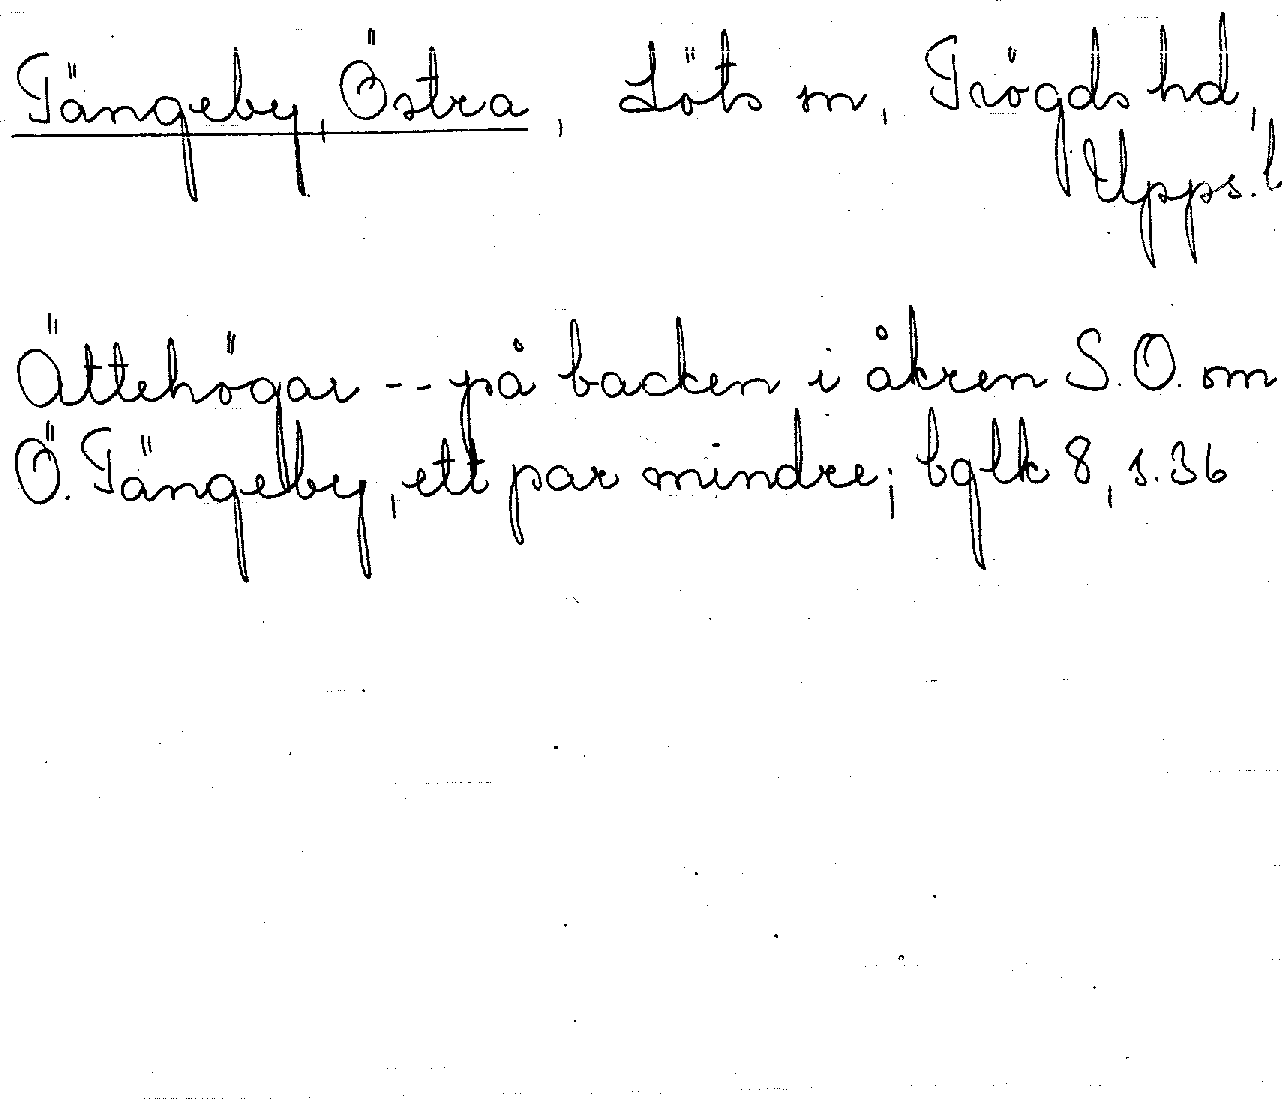 Tängeby, Östra, Löts sn, Trögds hd,
Upps. l
Ättehögar -- på backen i åkren S.O. om
Ö. Tängeby, ett par mindre; bglk 8, s. 36